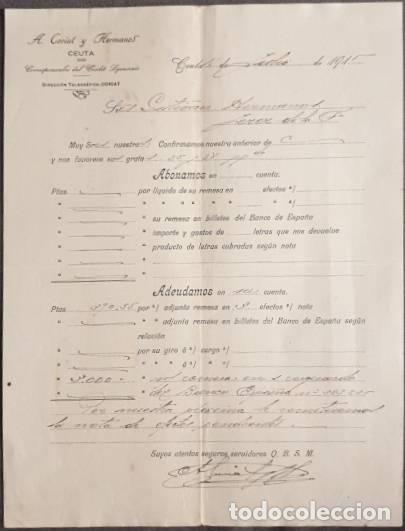 A. Coriat y Hermanos
CEUTA
Corresponsales del Crédit Lyonnais
DIRECCIÓN TELEGRÁFICA: CORIAT
Ceuta de Julio de 1915
Sres Gutierrez Hermanos
Jerez de la Fª
Muy Sres nuestros: Confirmamos nuestra anterior de
y nos favorece su grata
Abonamos en cuenta.
Ptas por líquido de su remesa en efectos s/
" " " " " " " " "
" " su remesa en billetes del Banco de España
" " importe y gastos de letras que nos devuelve
" " producto de letras cobradas según nota
"
"
Adeudamos en su cuenta.
Ptas 970.55 por s/ adjunta remesa en 3 efectos s/ nota
" " " adjunta remesa en billetes del Banco de España según
relación
" " por su giro á s/ cargo s/
" " " " " á " s/
" 3.000 n/ remesa en 1 resguardo
" de Banco España nº
Por nuestra próxima le remitiremos
la nota de efectos pendientes.
Suyos atentos seguros servidores Q. B. S. M.
todocoleccion.net